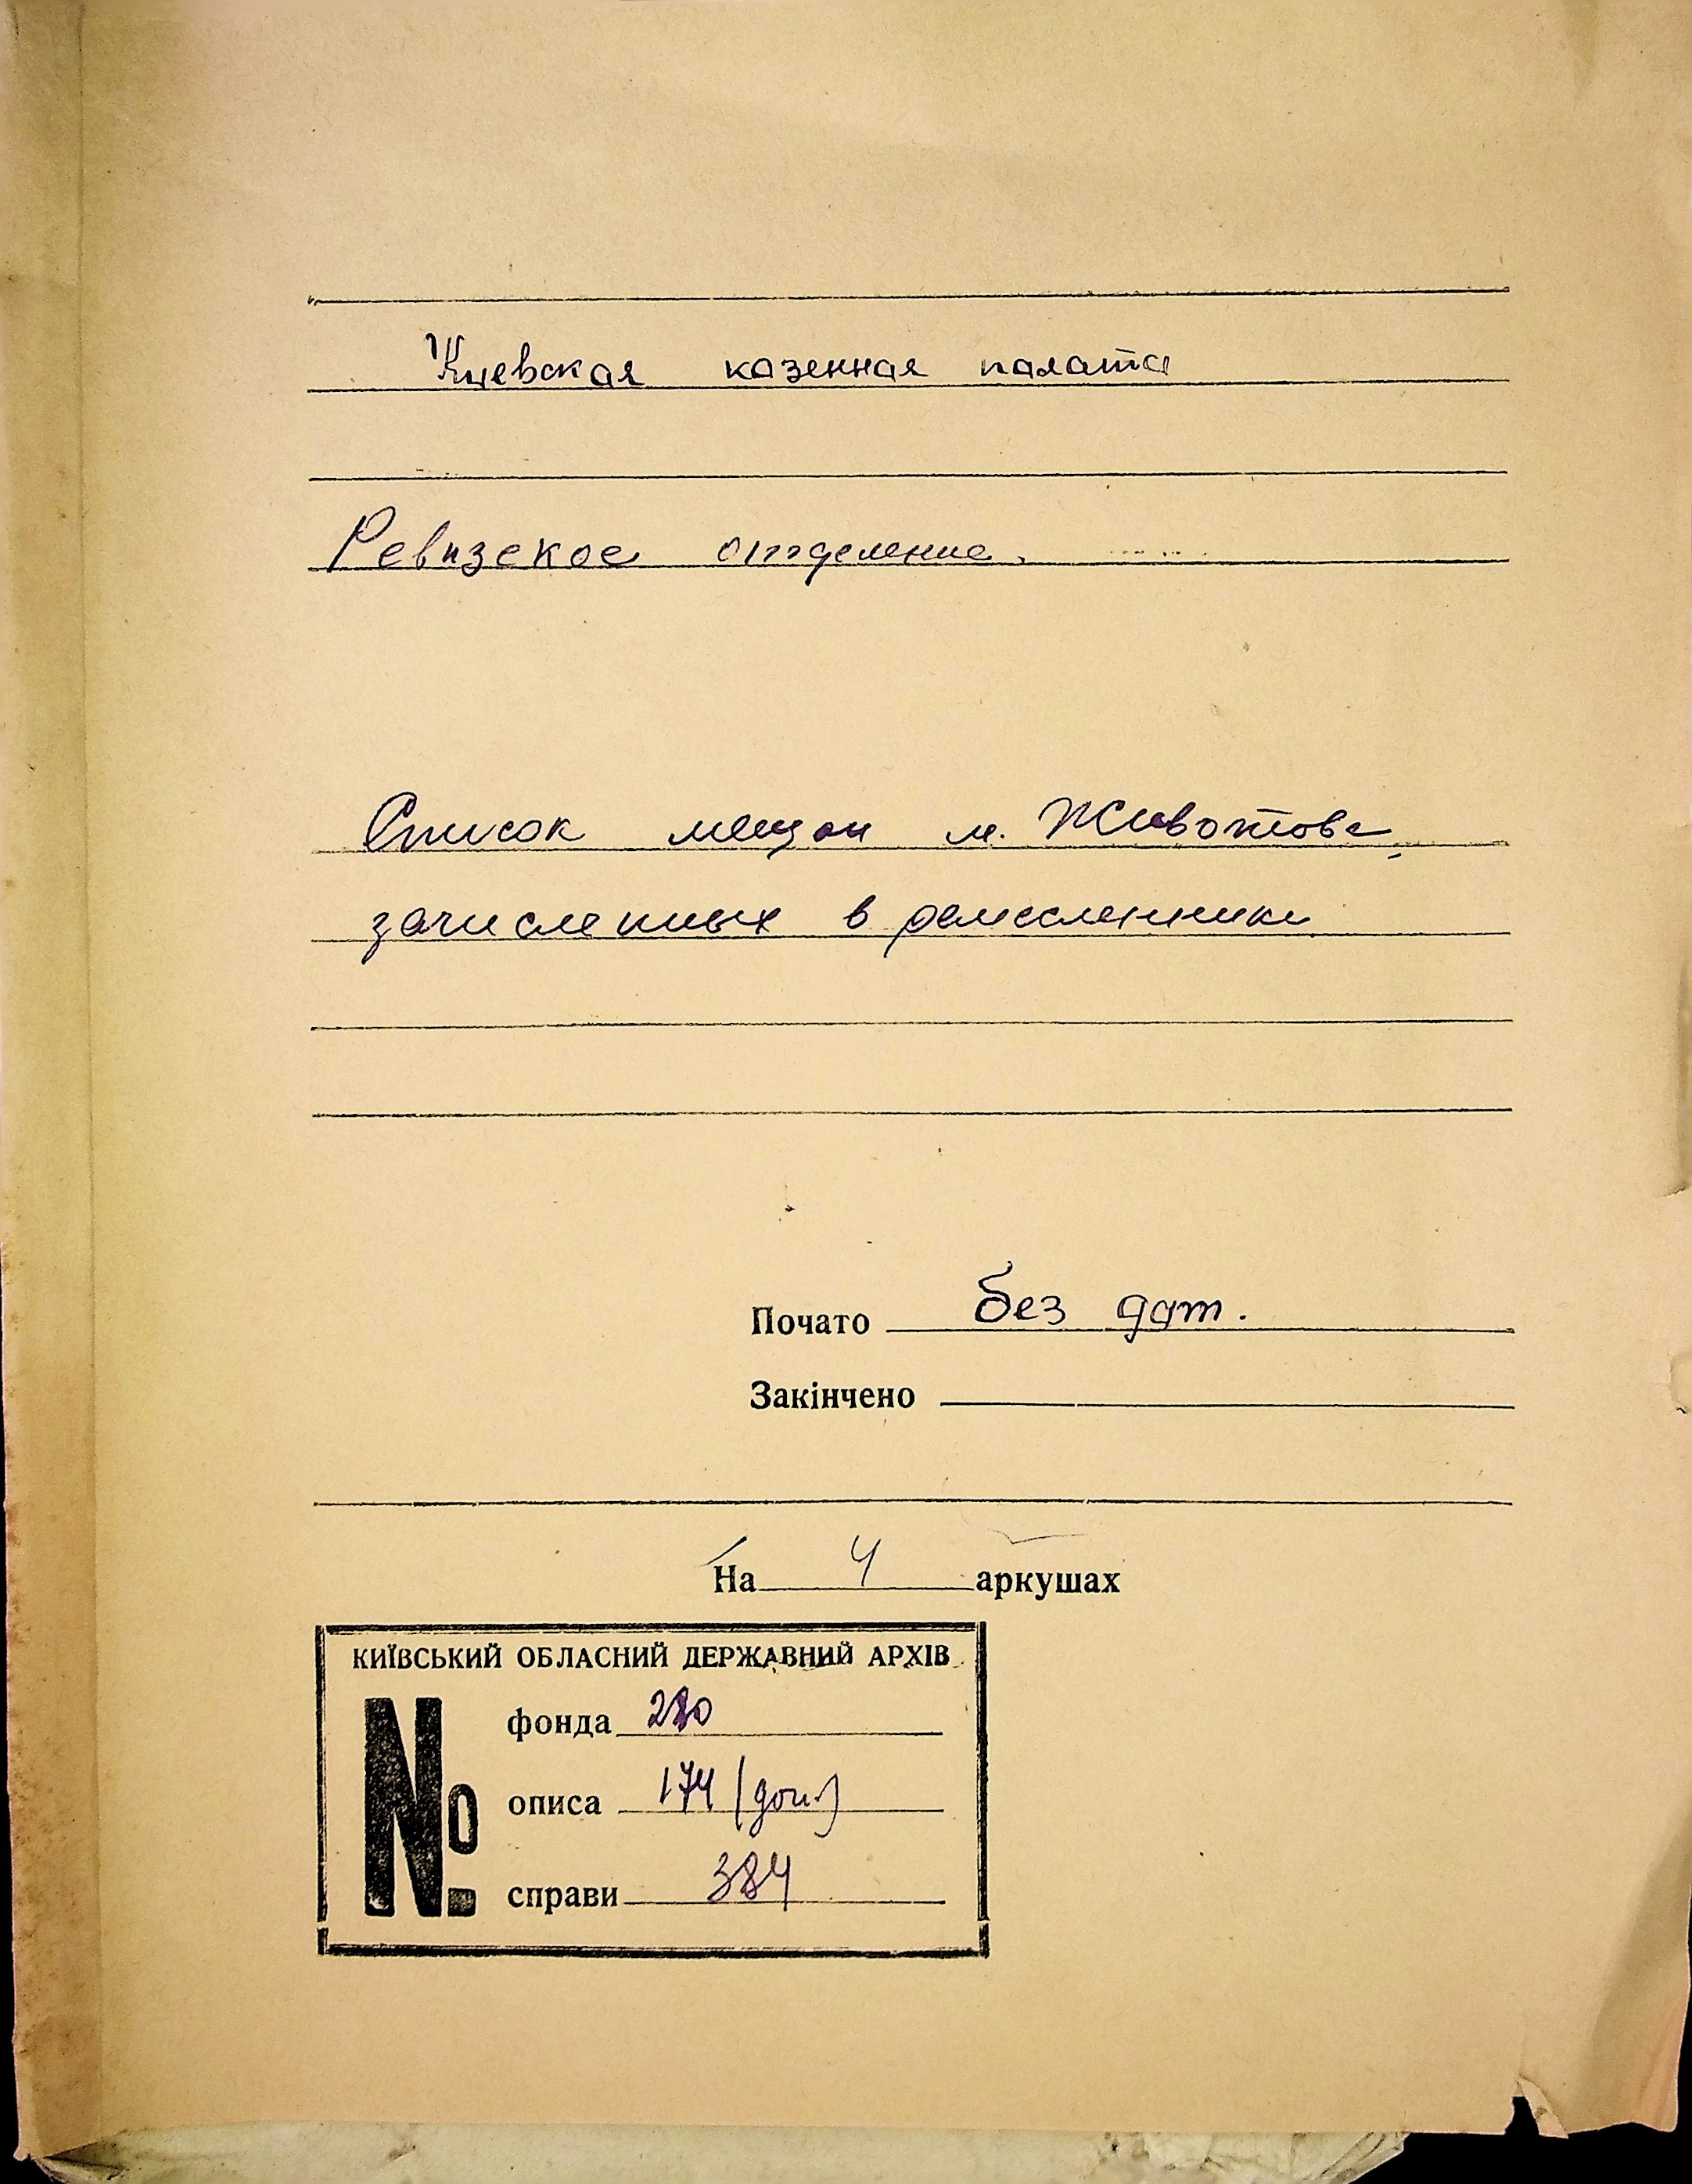 Киевская казенная палата
Ревизское отделение.
Список мещан м. Животова,
зачисленных в ремесленники
Почато без дат.
Закінчено
На 4 аркушах
КИЇВСЬКИЙ ОБЛАСНИЙ ДЕРЖАВНИЙ АРХІВ
№
фонда 280
описа 174 (доп.)
справи 384